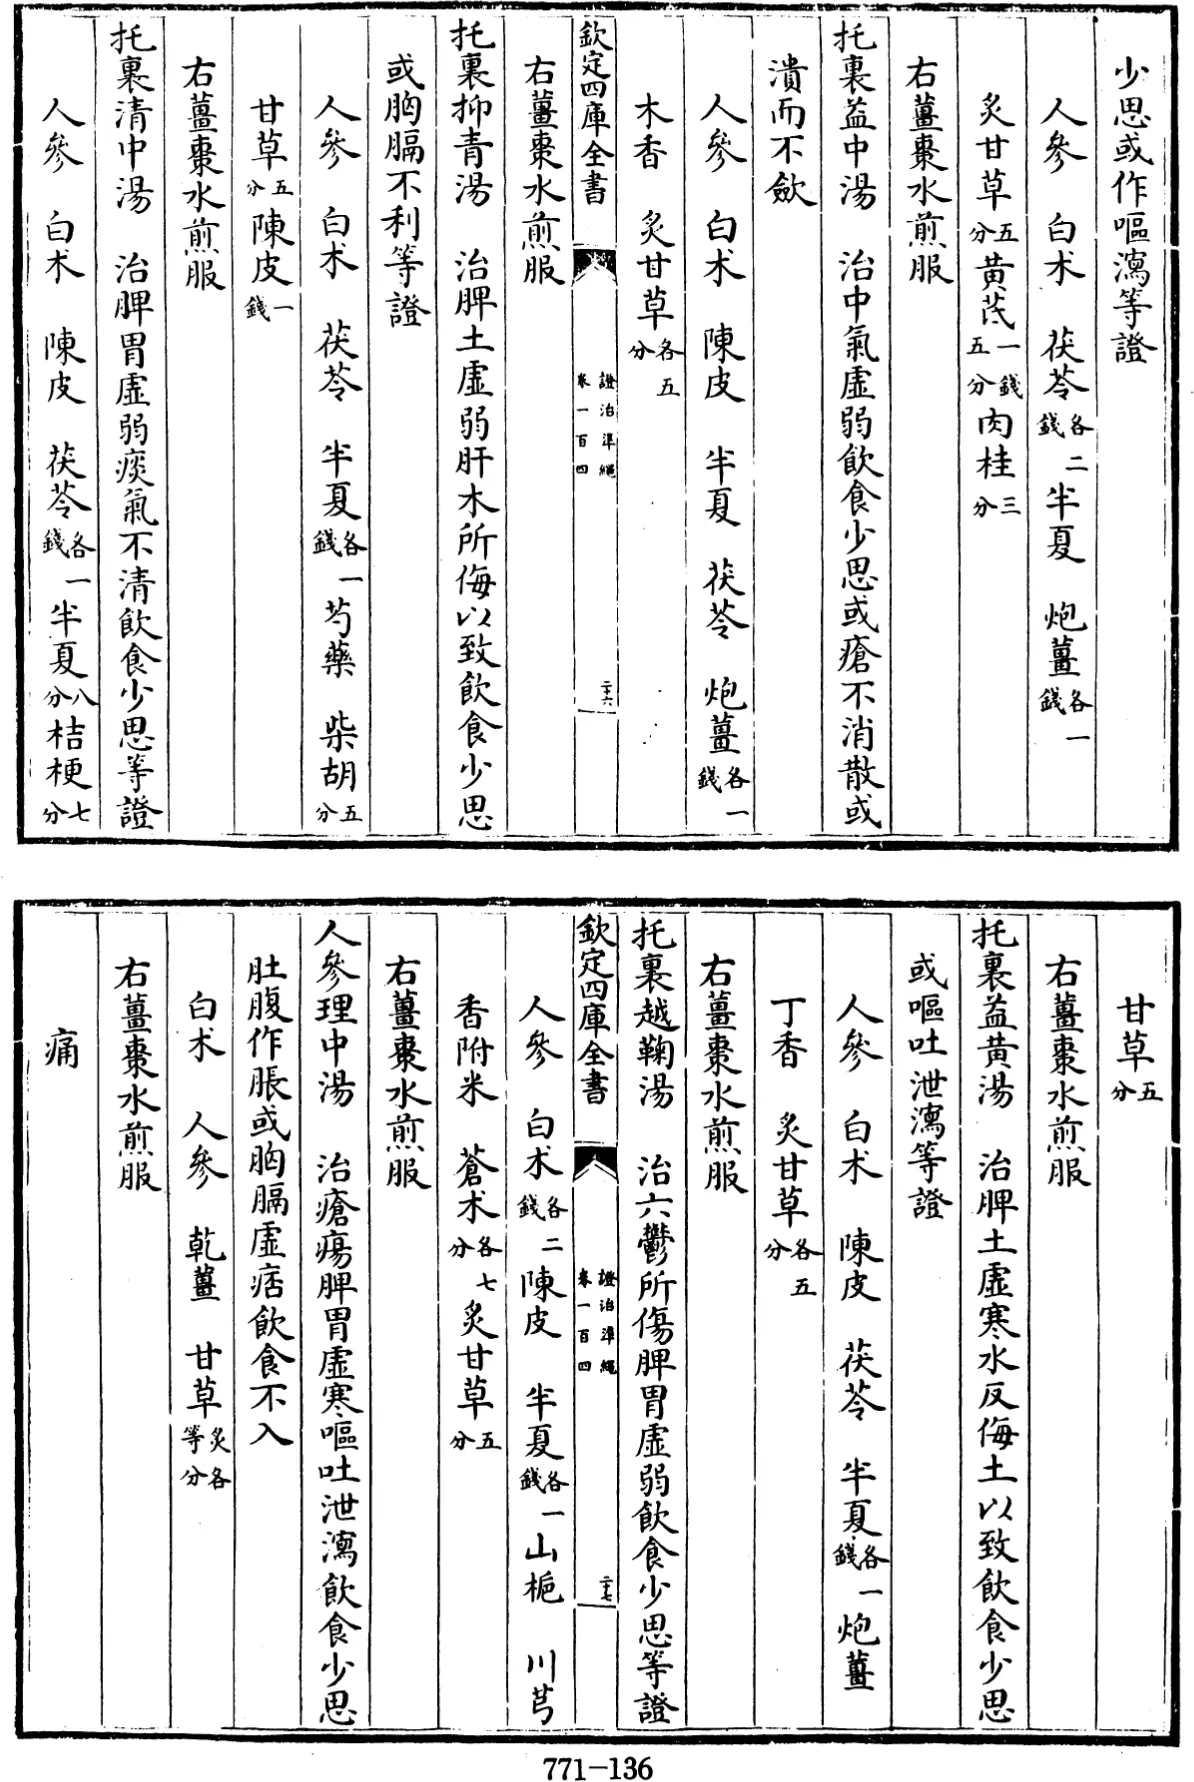 少思或作嘔瀉等證
人參 白术 茯苓各二錢 半夏 炮薑各一錢
炙甘草五分 黄芪一錢五分 肉桂三分
右薑棗水煎服
托裏益中湯 治中氣虛弱飲食少思或瘡不消散或
潰而不斂
人參 白术 陳皮 半夏 茯苓 炮薑各一錢
木香 炙甘草各五分
右薑棗水煎服
欽定四庫全書 證治準繩 卷一百四 二十六
托裏抑青湯 治脾土虛弱肝木所侮以致飲食少思
或胸膈不利等證
人參 白术 茯苓 半夏各一錢 芍藥 柴胡五分
甘草五分 陳皮一錢
右薑棗水煎服
托裏清中湯 治脾胃虛弱痰氣不清飲食少思等證
人參 白术 陳皮 茯苓各一錢 半夏八分 桔梗七分
甘草五分
右薑棗水煎服
托裏益黄湯 治脾土虛寒水反侮土以致飲食少思
或嘔吐泄瀉等證
人參 白术 陳皮 茯苓 半夏各一錢 炮薑
丁香 炙甘草各五分
右薑棗水煎服
托裏越鞠湯 治六鬱所傷脾胃虛弱飲食少思等證
欽定四庫全書 證治準繩 卷一百四 二十七
人參 白术各二錢 陳皮 半夏各一錢 山梔 川芎
香附米 蒼术各七分 炙甘草五分
右薑棗水煎服
人參理中湯 治瘡瘍脾胃虛寒嘔吐泄瀉飲食少思
肚腹作脹或胸膈虛痞飲食不入
白术 人參 乾薑 甘草炙各等分
右薑棗水煎服
痛
771-136